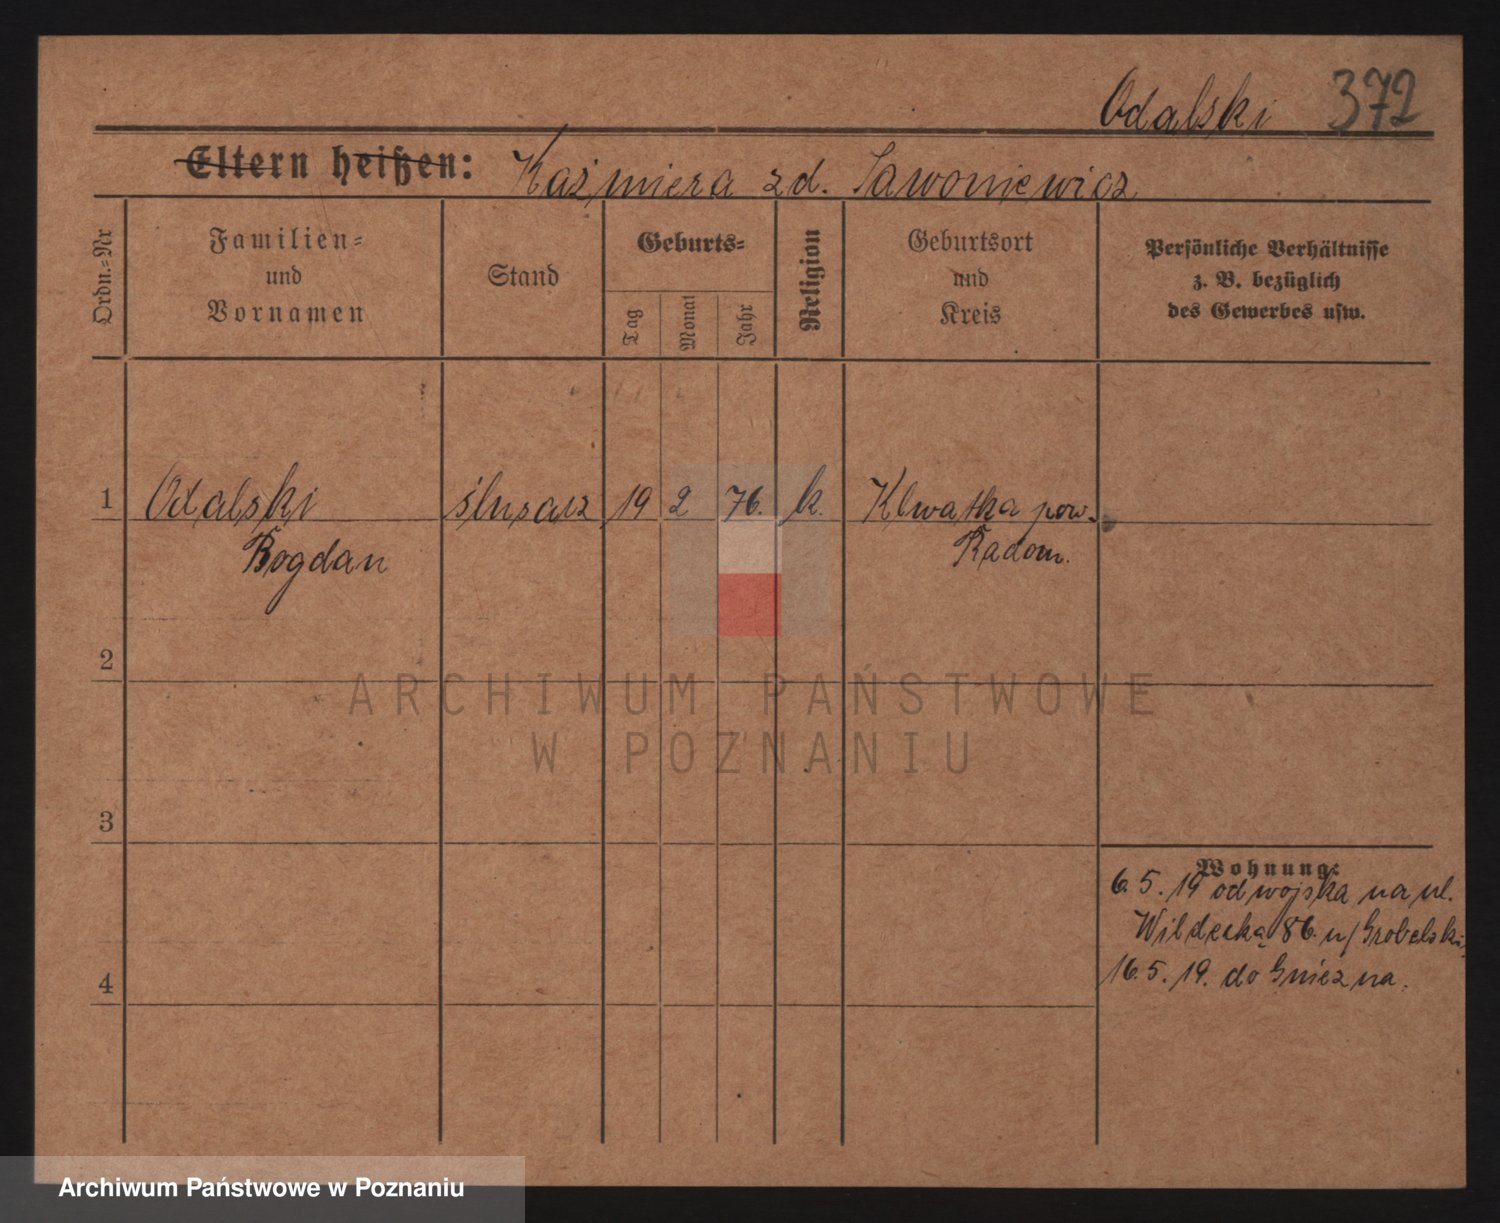 Odalski 372
Eltern heißen: Kaźmiera zd. Sawoniewicz
Ordn.=Nr
Familien=
und
Vornamen
Stand
Geburts=
Tag
Monat
Jahr
Religion
Geburtsort
und
Kreis
Persönliche Verhältnisse
z. B. bezüglich
des Gewerbes usw.
1 Odalski ślusarz 19 2 76. k. Klwatka pow.
Bogdan Radom.
2
3
4
Wohnung:
6.5.19 od wojska na ul.
Wildecką 86 u/Grobelski
16.5.19. do Gniezna.
ARCHIWUM PAŃSTWOWE
W POZNANIU
Archiwum Państwowe w Poznaniu